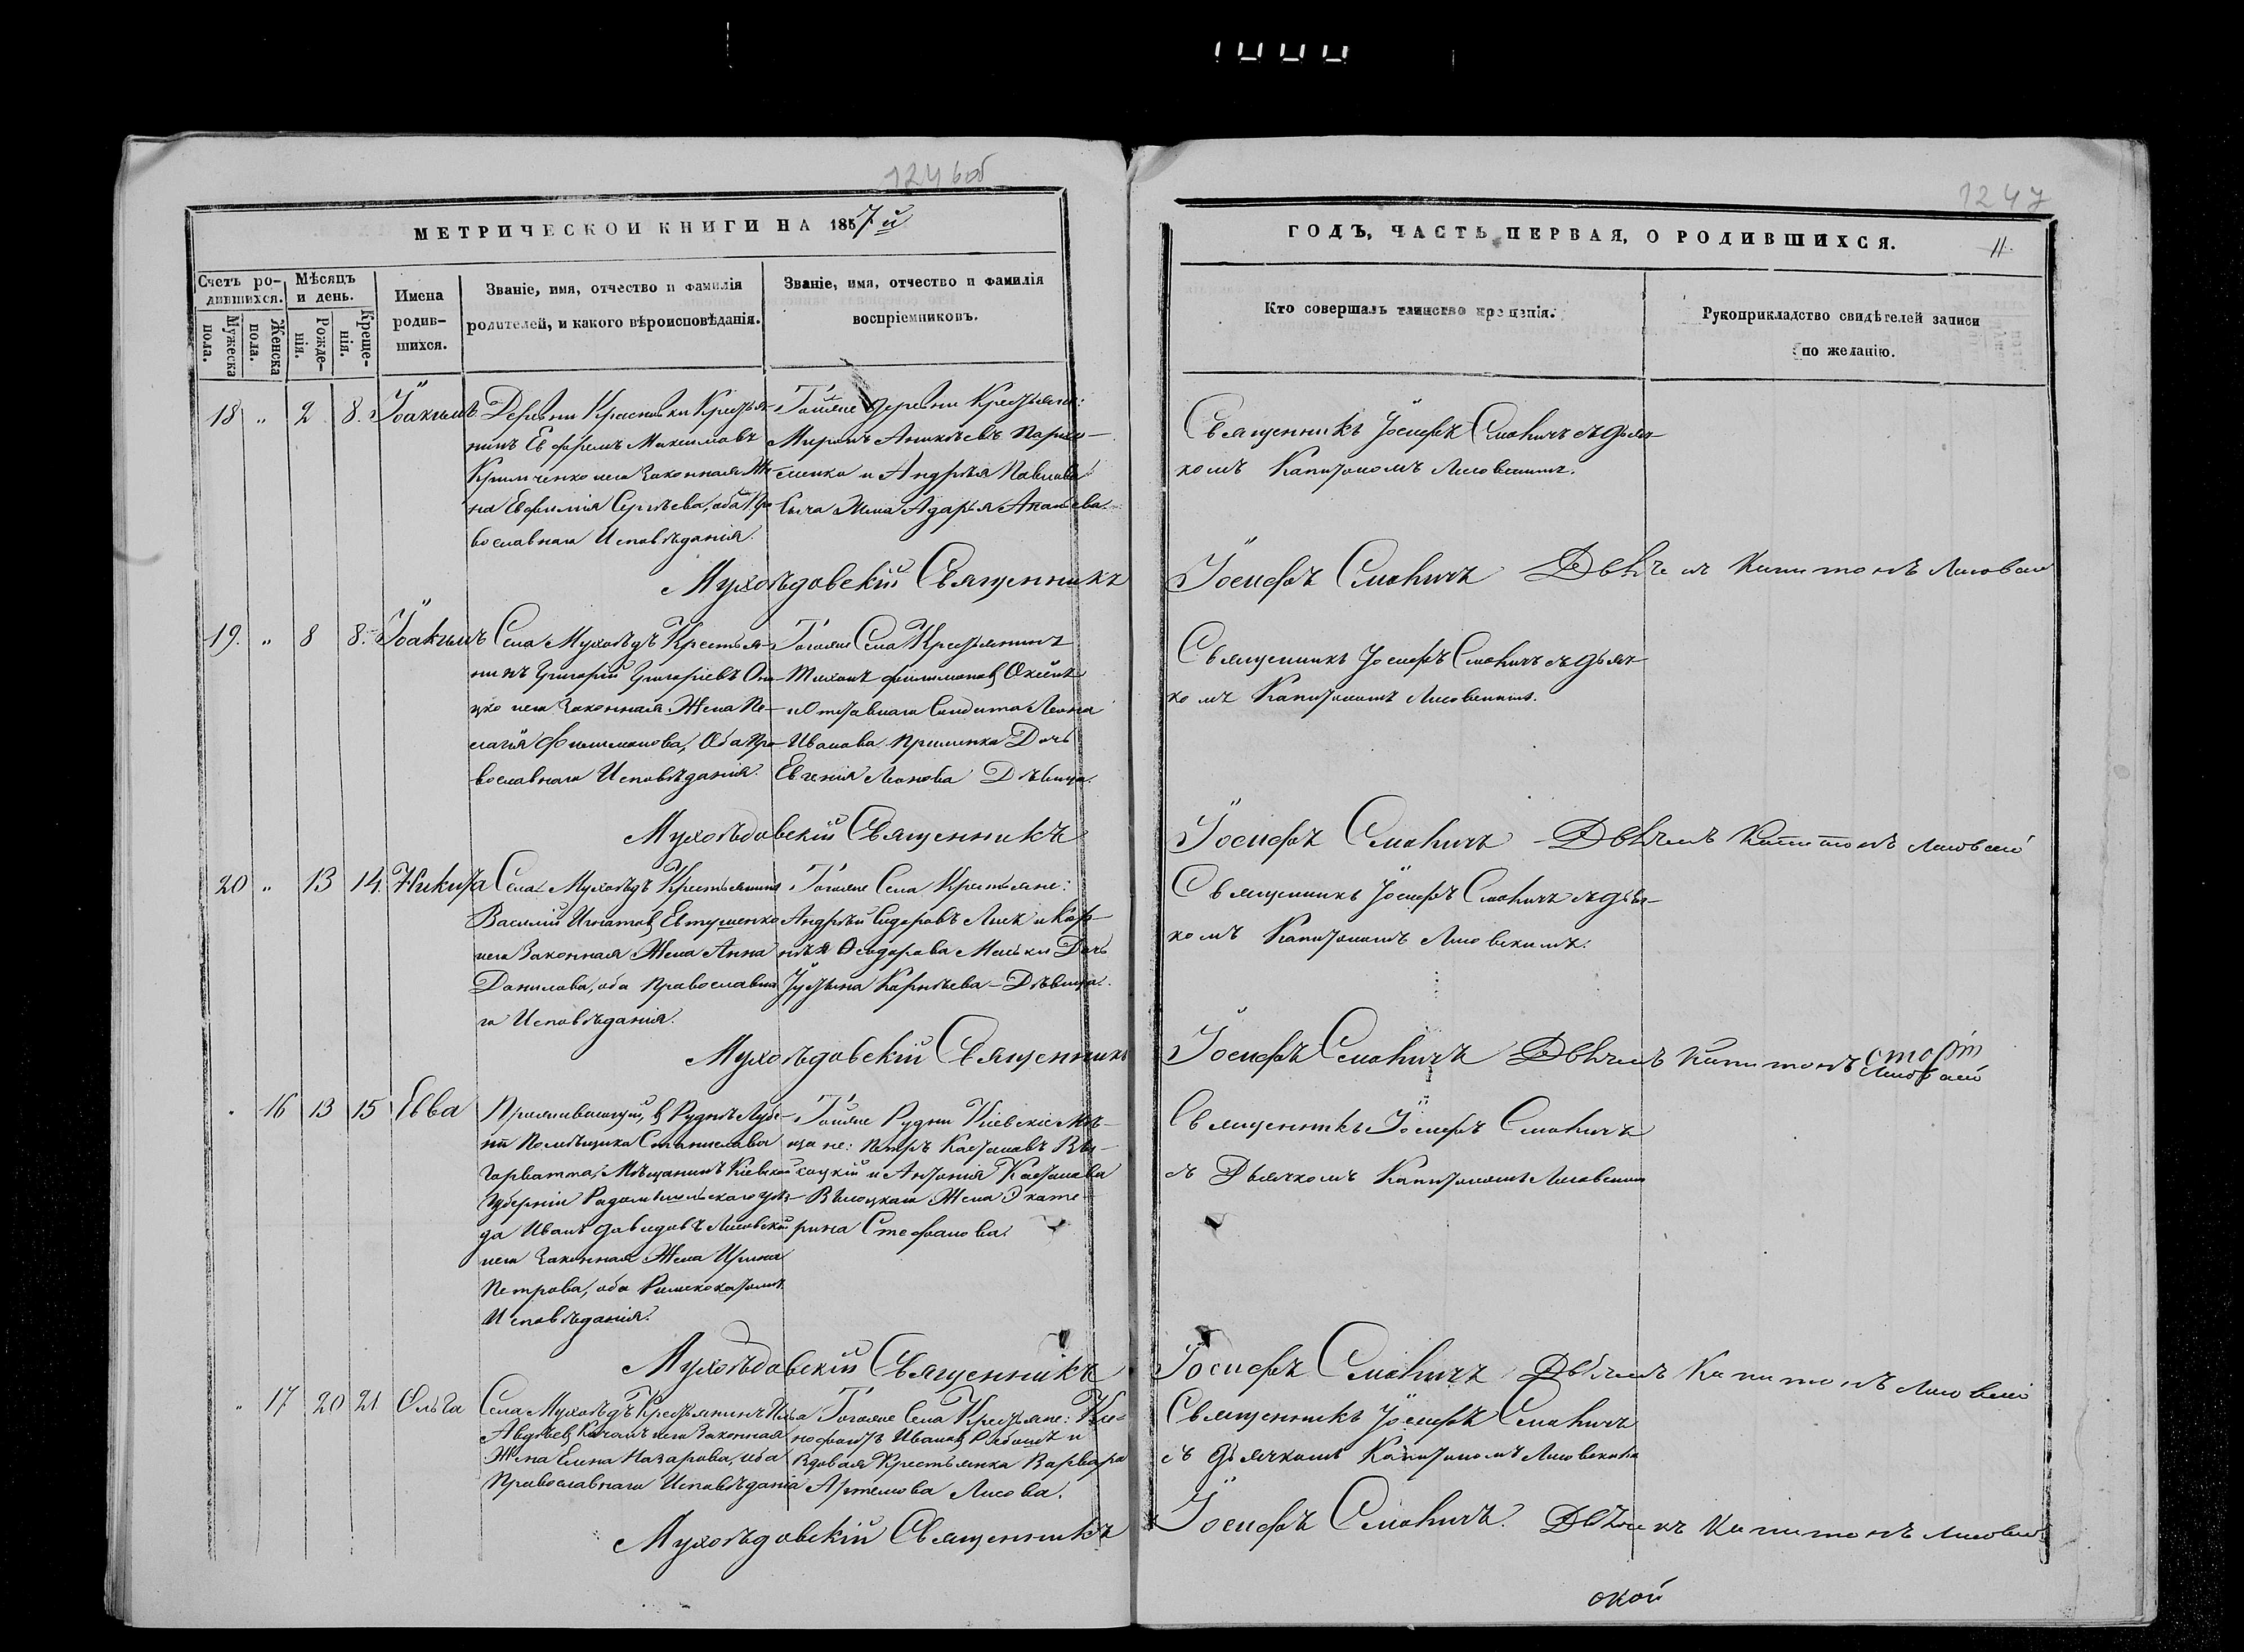 1246об
МЕТРИЧЕСКОИ КНИГИ НА 1857й
Счетъ ро-
дившихся.
Мужеска
пола.
Женска
пола.
Мѣсяцъ
и день.
Рожде-
нія.
Креще-
нія.
Имена
родив-
шихся.
Званіе, имя, отчество и фамилія
родителей, и какого вѣроисповѣданія.
Званіе, имя, отчество и фамилія
воспріемниковъ.
18 „ 2 8. Іоакимъ
Деревни Красновки Крестья-
нинъ Ефремъ Максимовъ
Кримченко и его Законная Же-
на Евфимія Сергѣева, оба Пра
вославнаго Исповѣданія.
Тойже деревни Крестьяне:
Миронъ Аникѣевъ Пархо-
менко и Андрѣя Павлова
Жена Дарья
Мухоѣдовскій Священникъ
19. „ 8 8. Іоакимъ
Села Мухоѣдъ Крестья-
нинъ Григорій Григоріевъ
его Законная Жена Пе-
лагія Филимонова, Оба Пра-
вославнаго Исповѣданія.
Тогоже Села Крестьянинъ
Тихонъ Филимоновъ
и Отставнаго Солдата Леона
Иванова Дочь
Евгенія Леонова Дѣвица.
Мухоѣдовскій Священникъ
20 „ 13 14. Никита
Села Мухоѣдъ Крестьянинъ
Василій Игнатовъ Евтушенко
его Законная Жена Анна
Данилова, оба Православна
го Исповѣданія.
Тогоже Села Крестьяне:
Андрѣй Сидоровъ Лисъ и Кор-
нѣя Ѳеодорова Дочь
Іустина Корнѣева - Дѣвица.
Мухоѣдовскій Священникъ
„ 16 13 15 Евва
Проживающій, в Руднѣ
Помѣщика Станислава
Горватта, Мѣщанинъ Кіевской
Губерніи Радомысльскаго уѣз-
да Иванъ Давидовъ Лисовскій
его Законная Жена Ирина
Петрова, оба Римскокатолич.
Исповѣданія.
Тойже Рудни Кіевскіе Мѣ-
щане: Петръ
и Антонія
Жена Екате-
рина Стефанова.
Мухоѣдовскій Священникъ
„ 17 20 21 Ольга
Села Мухоѣдъ Крестьянинъ Илья
Авдѣевъ его Законная
Жена Елена Назарова, оба
Православнаго Исповѣданія
Тогоже Села Крестьяне: Кс-
нофонтъ Ивановъ и
Вдовая Крестьянка Варвара
Артемова Лисова.
Мухоѣдовскій Священникъ
1247
ГОДЪ, ЧАСТЬ ПЕРВАЯ, О РОДИВШИХСЯ.
11.
Кто совершалъ таинство крещенія.
Рукоприкладство свидѣтелей записи
по желанію.
Священникъ Іосифъ Смоличъ съ дьяч-
комъ Капитономъ Лисовскимъ.
Іосифъ Смоличъ Дьячекъ Капитонъ Лисовскій
Священникъ Іосифъ Смоличъ съ дьяч-
комъ Капитономъ Лисовскимъ.
Іосифъ Смоличъ Дьячекъ Капитонъ Лисовскій
Священникъ Іосифъ Смоличъ съ дьяч-
комъ Капитономъ Лисовскимъ.
Іосифъ Смоличъ Дьячекъ Капитонъ Лисовскій
Священникъ Іосифъ Смоличъ
съ Дьячкомъ Капитономъ Лисовскимъ
Іосифъ Смоличъ Дьячекъ Капитонъ Лисовскій
Священникъ Іосифъ Смоличъ
съ дьячкомъ Капитономъ Лисовскимъ
Іосифъ Смоличъ. Дьячекъ Капитонъ Лисовскій
окой